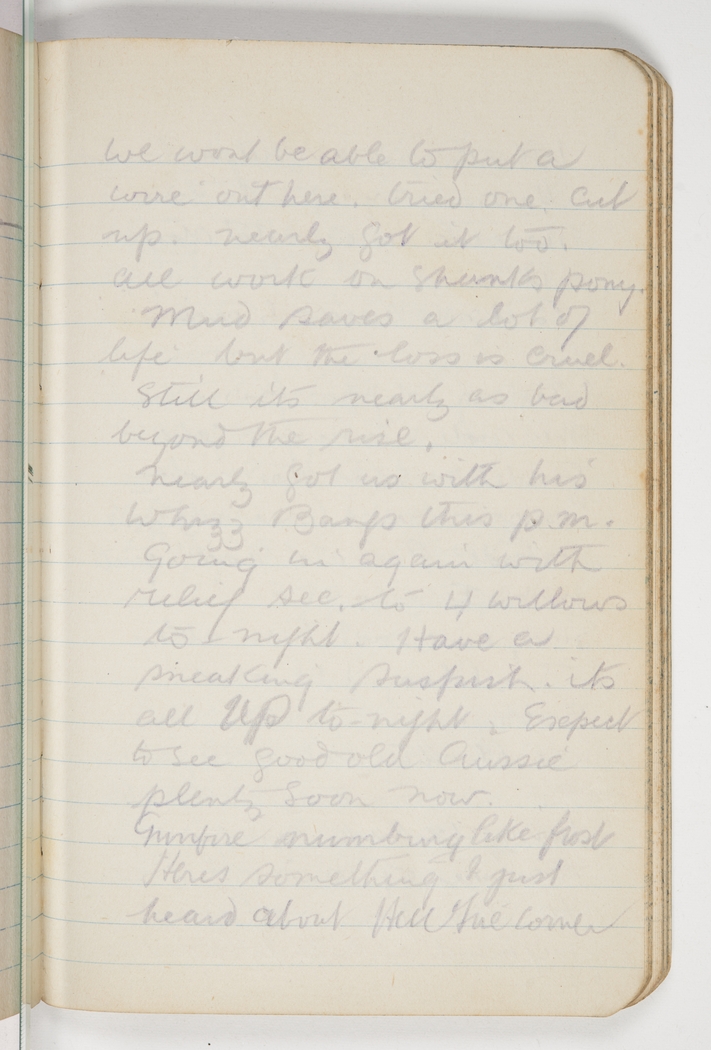 we wont be able to put a
wire out here. tried one. cut
up. nearly got it too.
all work on Shanks pony.
Mud saves a lot of
life but the loss is cruel.
Still its nearly as bad
beyond the rise.
Nearly got us with his
Whizz Bangs this p.m.
Going in again with
relief sec. to 4 willows
to-night. Have a
sneaking suspish. its
all Up to-night, Expect
to see good old Aussie
plenty soon now.
Gunfire numbing like frost
Heres something I just
heard about Hell Fire Corner